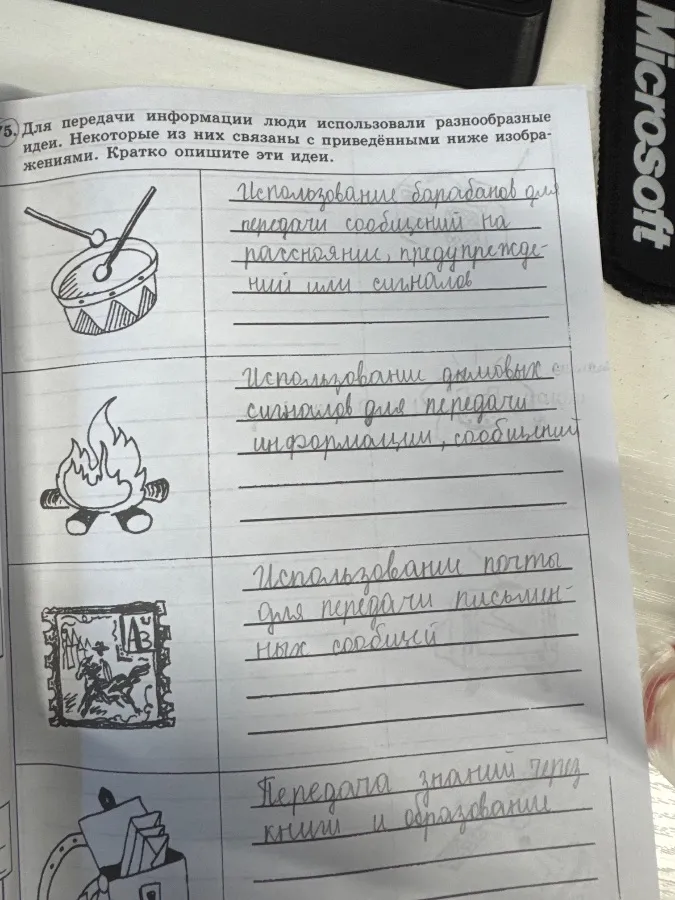 Microsoft
75. Для передачи информации люди использовали разнообразные
идеи. Некоторые из них связаны с приведёнными ниже изобра-
жениями. Кратко опишите эти идеи.
Использование барабанов для
передачи сообщений на
расстояние, предупрежде-
ний или сигналов
Использование дымовых
сигналов для передачи
информации, сообщений
Использование почты
для передачи письмен-
ных сообщей
АЗ
Передача знаний через
книги и образование